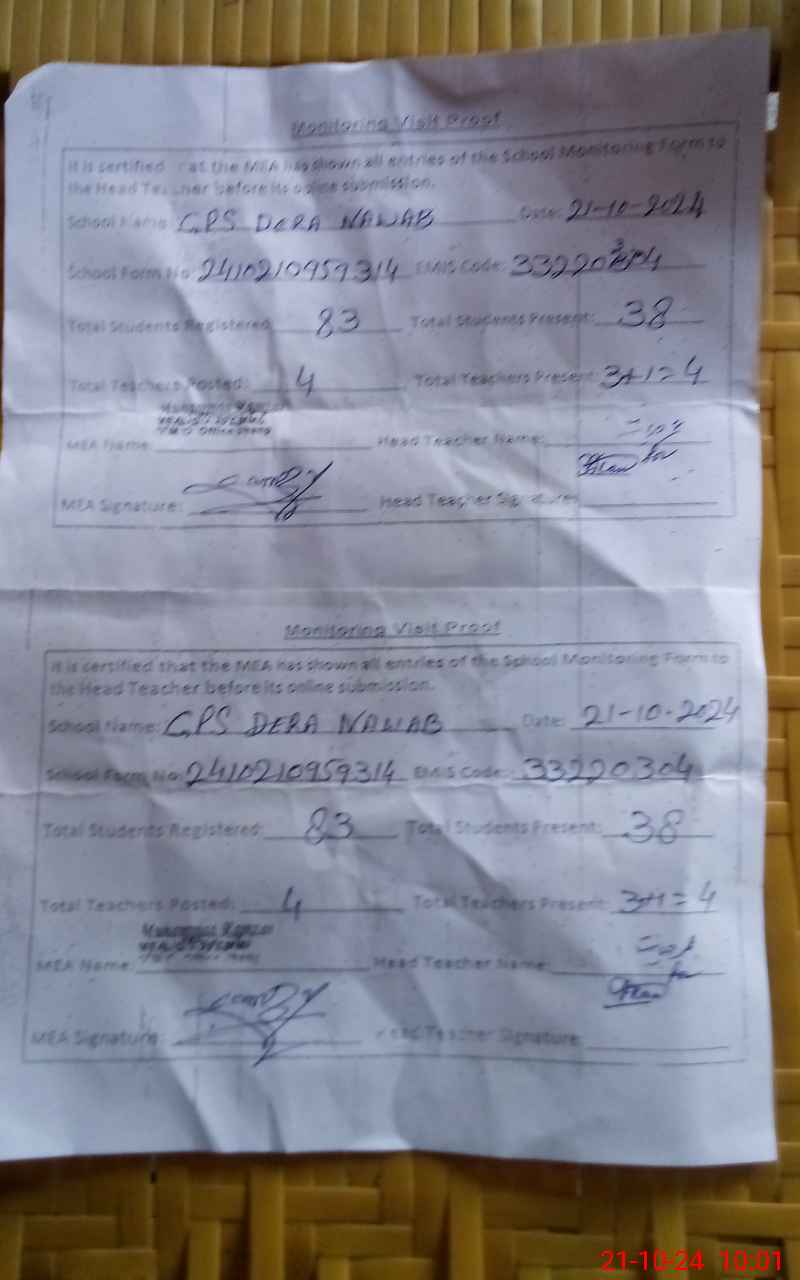 Monitoring Visit Proof
It is certified at the MEA has shown all entries of the School Monitoring Form to
the Head Teacher before its online submission.
School Name: GPS DERA NAWAB Date: 21-10-2024
School Form No: 2410210959314 EMIS Code:
Total Students Registered: 83 Total Students Present: 38
Total Teachers Posted: 4 Total Teachers Present: 3+1=4
MEA Name: Head Teacher Name:
MEA Signature: Head Teacher Signature:
Monitoring Visit Proof
It is certified that the MEA has shown all entries of the School Monitoring Form to
the Head Teacher before its online submission.
School Name: GPS DERA NAWAB Date: 21-10-2024
School Form No: 2410210959314 EMIS Code: 33220304
Total Students Registered: 83 Total Students Present: 38
Total Teachers Posted: 4 Total Teachers Present: 3+1=4
MEA Name: Head Teacher Name:
MEA Signature: Head Teacher Signature:
21-10-24 10:01